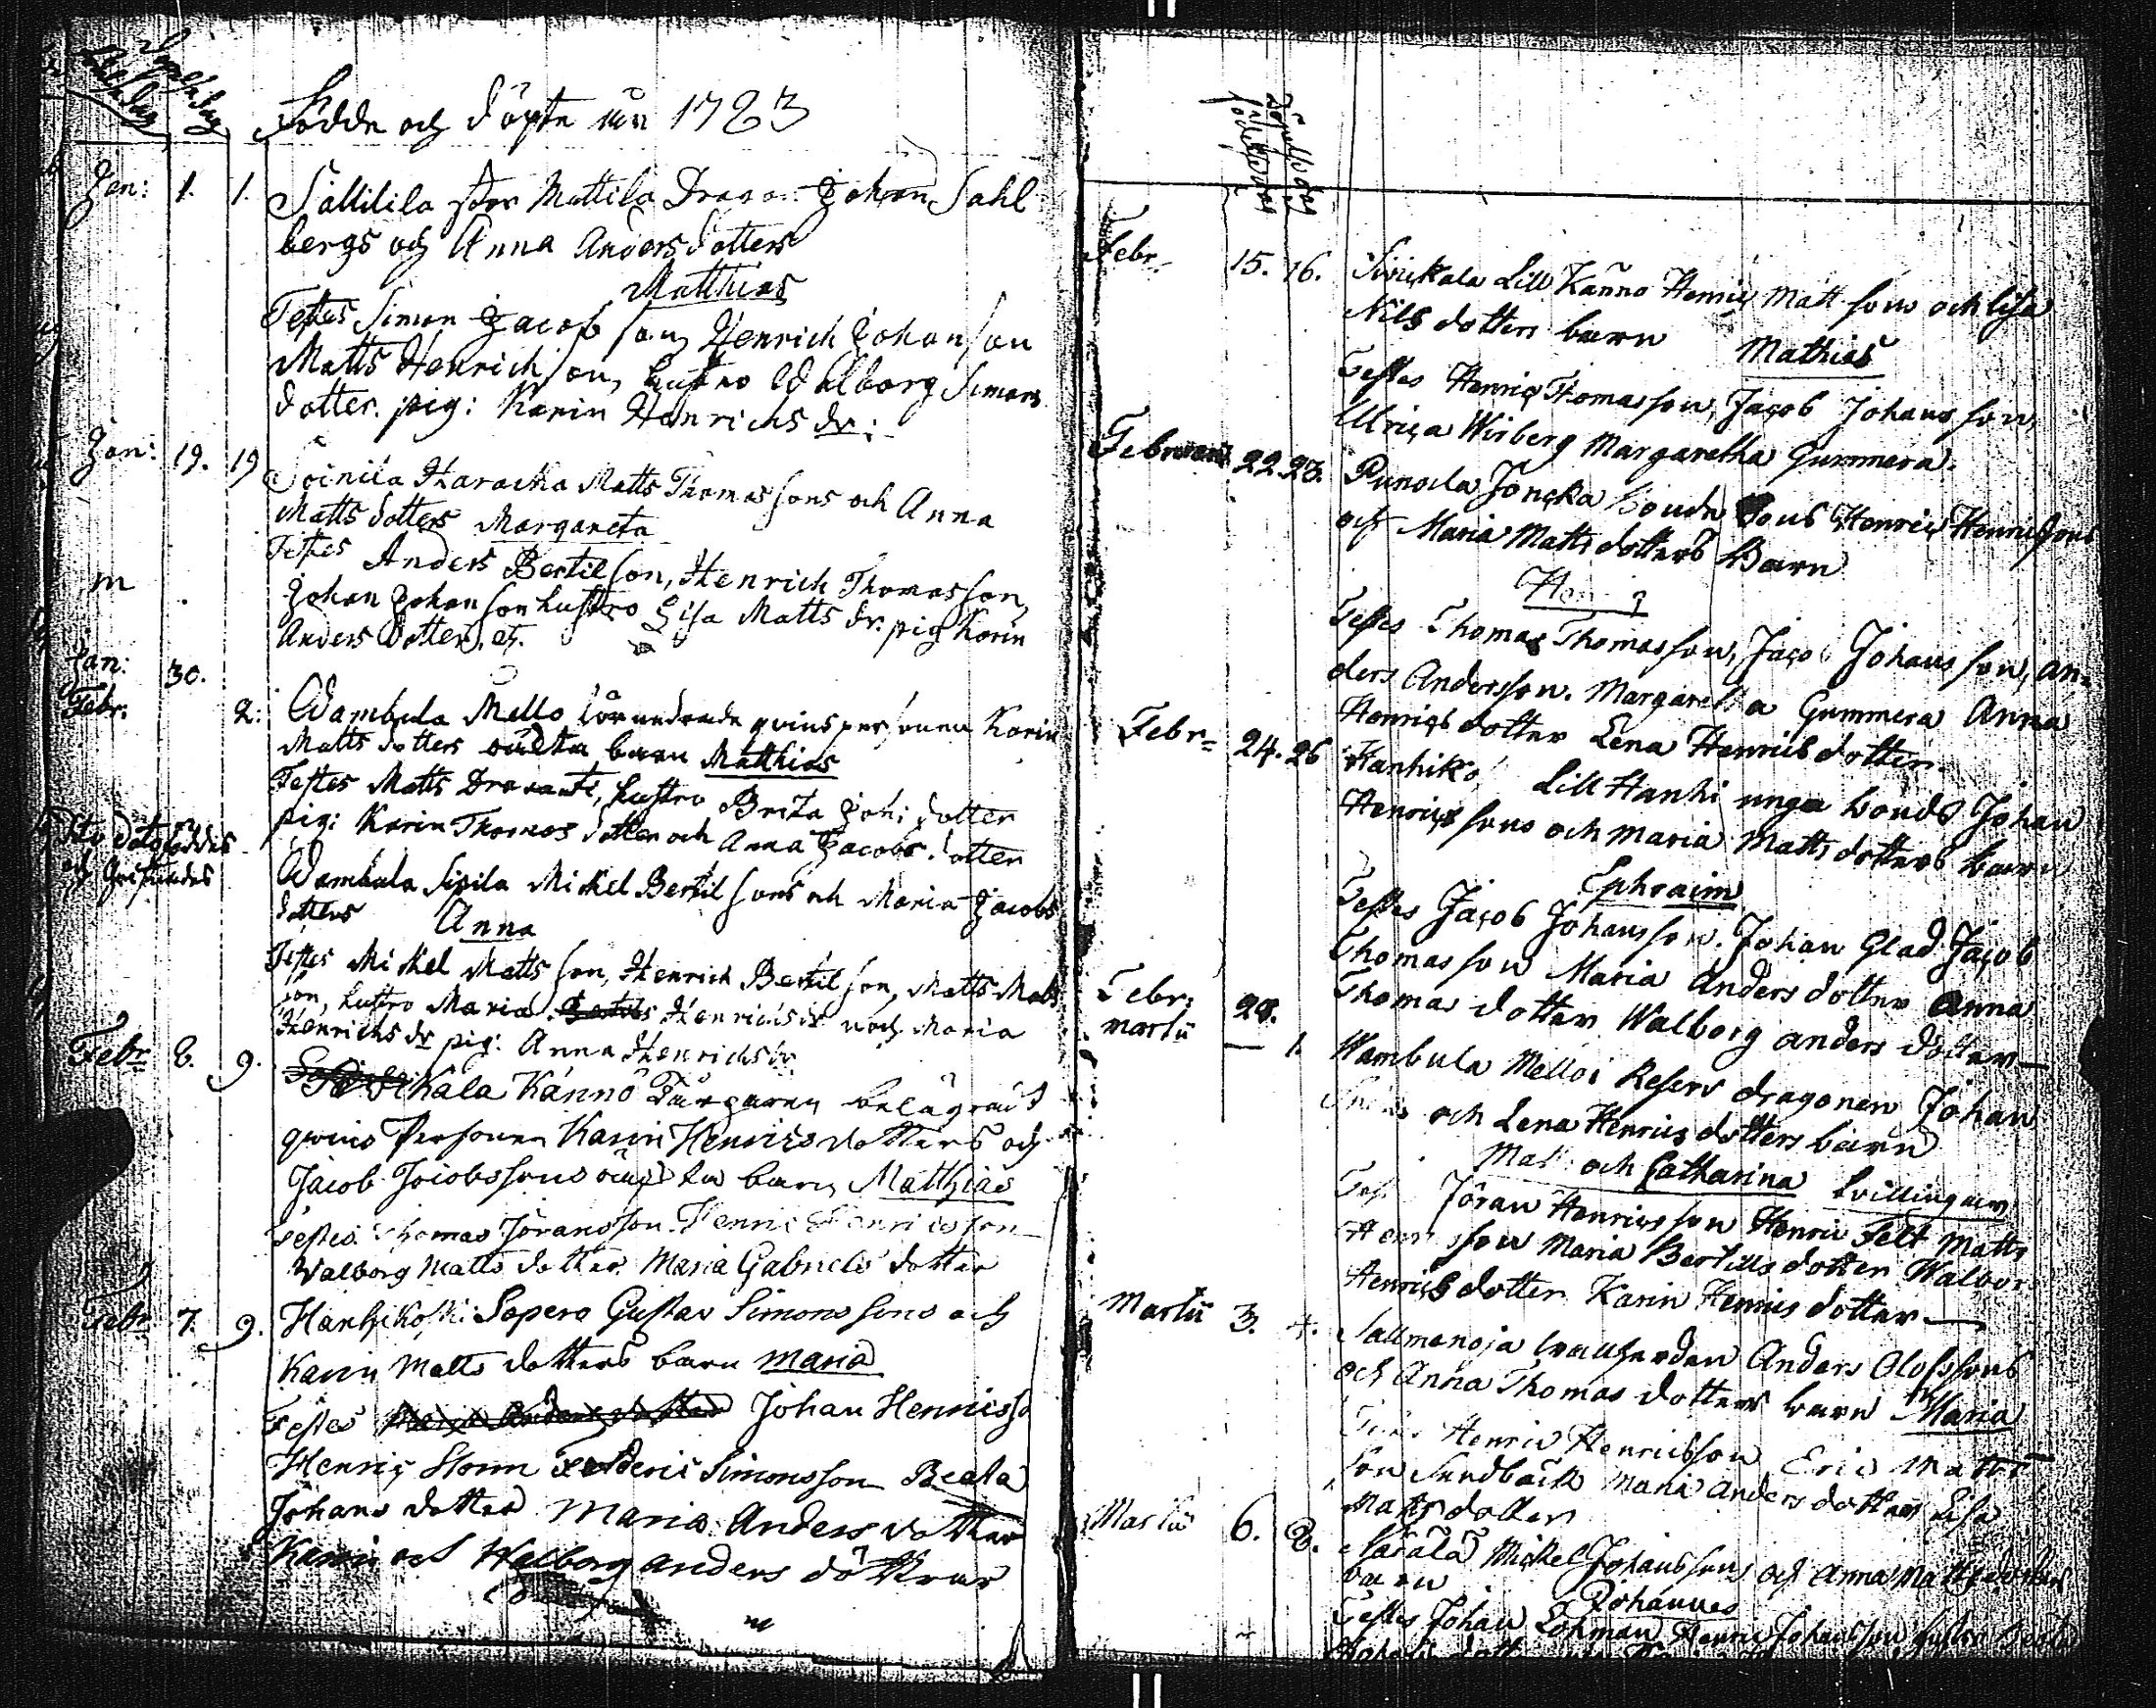 Födde och döpte år 1783
Jan: 1. 1. Sallilila stor Mattila Dragon Johan Sahl
bergs och Anna Anders dotters
Matthias
Testes Simon Jacobson, Henrich Johanson
Matts Henrichson, hustro Walborg Simons
dotter. pig: Karin Henrichs dr:
Jan: 19. 19 Soinila Haracka Matts Thomassons och Anna
Matts dotters Margareta
Testes Anders Bertilson, Henrich Thomasson,
Johan Johanson hustro Lisa Matts dr. pig Karin
Anders dotter. etc.
Jan: 30.
Febr. 2: Wambula Mello qvinspersonen Karin
Matts dotters oäkta barn Matthias
Testes Matts Dravanti, hustro Brita Joh: dotter
pig: Karin Thomas dotter och Anna Jacobs dotter
Wambula Sipila Mickel Bertilsons och Maria Jacobs
dotters Anna
Testes Mickel Mattsson, Henrich Bertilson, Matts Matts
son, hustro Maria Henrichs dr och Maria
Henrichs dr pig: Anna Henrichs dr
Febr 8. 9. Kala Känno belägrad
qvins Personen Karin Henrics dotters och
Jacob Jacobssons oäkta barn Matthias
Testes Thomas Jöransson Henric Henricsson
Walborg Matts dotter Maria Gabriels dotter
Febr 7. 9. Hanhikoski Sopero Gustav Simonssons och
Karin Matts dotters barn Maria
Testes Johan Henricsso
Henric Storm Fredric Simonsson Beata
Johans dotter Maria Anders dotter
Karin och Walborg anders döttrar
Febr. 15. 16. Sirickala Lill Känno Henric Mattsons och Lisa
Nils dotters barn Mathias
Testes Henric Thomasson, Jacob Johansson,
Ulrica Wirberg Margaretha Gummera.
Februarii 22. 23. Punola Jöncka bonde Sons Henric Henricssons
och Maria Matts dotters Barn
Testes Thomas Thomasson, Jacob Johansson, An-
ders Andersson. Margaretha Gummera Anna
Henrics dotter Lena Henrics dotter.
Febr= 24. 26 Hanhiko Lill Hanhi unga bonds Johan
Henricssons och Maria Matts dotters barn
Ephraim
Testes Jacob Johansson. Johan Glad Jacob
Thomasson Maria Anders dotter Anna
Thomas dotter Walborg anders dotter—
Febr: 28.
martii — 1. Wambula Melloi Reserv dragonen Johan
och Lena Henrics dotters barn
Mat: och Catharina tvillingar
Test Jöran Henricsson Henric Felt Matts
Henricsson Maria Bertills dotter Walbor
Henrics dotter Karin Henrics dotter—
Martii 3. 4. Sallmenoja Anders Olofssons
och Anna Thomas dotters barn Maria
Testes Henric Henricsson Eric Matts
son Sundbäck Maria Anders dotter Lisa
Matts dotter
Martii 6. 8. Mickel Johanssons och Anna Matts dotters
barn Johannes
Testes Johan Lohman Henric Johansson hustro Beata